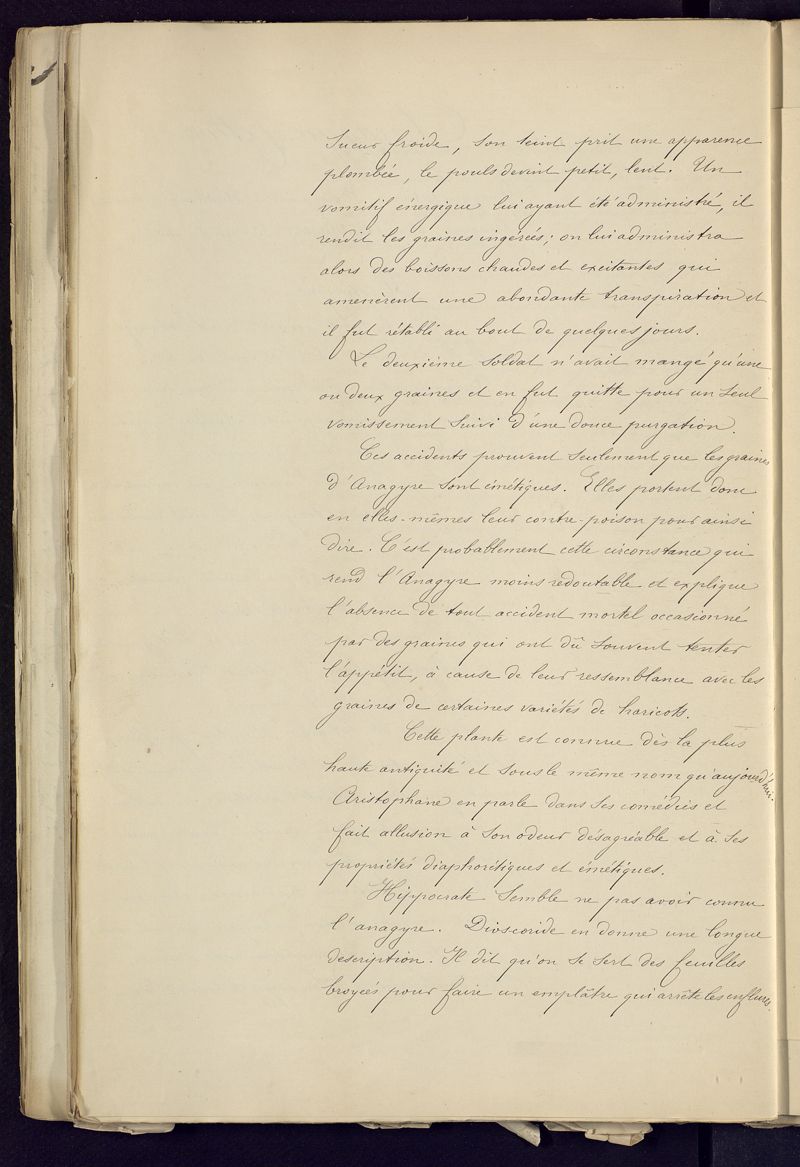 sueur froide, son teint prit une apparence
plombée, le pouls devint petit, lent. Un
vomitif énergique lui ayant été administré, il
rendit les graines ingérées; on lui administra
alors des boissons chaudes et excitantes qui
amenèrent une abondante transpiration et
il fut rétabli au bout de quelques jours.
Le deuxième soldat n'avait mangé qu'une
ou deux graines et en fut quitte pour un seul
vomissement suivi d'une douce purgation.
Ces accidents prouvent seulement que les graines
d'Anagyre sont émétiques. Elles portent donc
en elles-mêmes leur contre-poison pour ainsi
dire. C'est probablement cette circonstance qui
rend l'Anagyre moins redoutable et explique
l'absence de tout accident mortel occasionné
par des graines qui ont dû souvent tenter
l'appétit, à cause de leur ressemblance avec les
graines de certaines variétés de haricots.
Cette plante est connue dès la plus
haute antiquité et sous le même nom qu'aujourd'hui.
Aristophane en parle dans ses comédies et
fait allusion à son odeur désagréable et à ses
propriétés diaphorétiques et émétiques.
Hippocrate semble ne pas avoir connu
l'anagyre. Dioscoride en donne une longue
description. Il dit qu'on se sert des feuilles
broyées pour faire un emplâtre qui arrête les enflures.